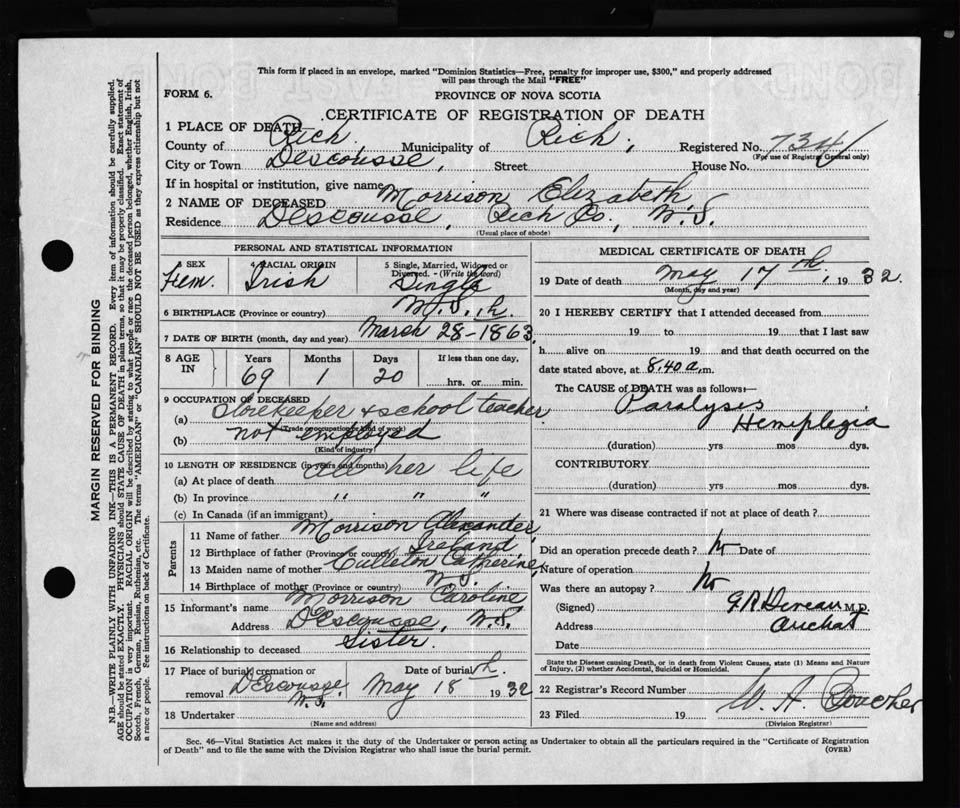 This form if placed in an envelope, marked "Dominion Statistics—Free, penalty for improper use, $300," and properly addressed
will pass through the Mail "FREE"
FORM 6.
PROVINCE OF NOVA SCOTIA
CERTIFICATE OF REGISTRATION OF DEATH
1 PLACE OF DEATH
County of Rich. Municipality of Rich, Registered No. 734
(For use of Registrar General only)
City or Town Descousse, Street House No.
If in hospital or institution, give name
2 NAME OF DECEASED Morrison Elizabeth,
Residence Descousse, Rich Co., N.S.
(Usual place of abode)
PERSONAL AND STATISTICAL INFORMATION
3 SEX Fem.
4 RACIAL ORIGIN Irish
5 Single, Married, Widowed or Divorced. - (Write the word) Single
6 BIRTHPLACE (Province or country) N.S.
7 DATE OF BIRTH (month, day and year) March 28-1863
8 AGE IN Years 69 Months 1 Days 20 If less than one day, hrs. or min.
9 OCCUPATION OF DECEASED
(a) Storekeeper & school teacher
(Trade or occupation or kind of work)
(b) not employed
(Kind of industry)
10 LENGTH OF RESIDENCE (in years and months)
(a) At place of death All her life
(b) In province " " "
(c) In Canada (if an immigrant)
Parents
11 Name of father Morrison Alexander
12 Birthplace of father (Province or country) Ireland
13 Maiden name of mother Culleton Catherine
14 Birthplace of mother (Province or country) N.S.
15 Informant's name Morrison Caroline
Address DEscousse, N.S.
16 Relationship to deceased Sister.
17 Place of burial, cremation or removal DEscousse N.S. Date of burial May 18th 1932
18 Undertaker
(Name and address)
MEDICAL CERTIFICATE OF DEATH
19 Date of death May 17th, 1932.
(Month, day and year)
20 I HEREBY CERTIFY that I attended deceased from
19 to 19 that I last saw
h alive on 19 and that death occurred on the
date stated above, at 8.40 a.m.
The CAUSE of DEATH was as follows:—
Paralysis
Hemiplegia
(duration) yrs mos dys.
CONTRIBUTORY
(duration) yrs mos dys.
21 Where was disease contracted if not at place of death?
Did an operation precede death? No Date of
Nature of operation
Was there an autopsy? No
(Signed) M.D.
Address Arichat
Date
State the Disease causing Death, or in death from Violent Causes, state (1) Means and Nature
of Injury, (2) whether Accidental, Suicidal or Homicidal.
22 Registrar's Record Number
23 Filed 19 W. A. Boucher
(Division Registrar)
Sec. 46—Vital Statistics Act makes it the duty of the Undertaker or person acting as Undertaker to obtain all the particulars required in the "Certificate of Registration
of Death" and to file the same with the Division Registrar who shall issue the burial permit.
(OVER)
MARGIN RESERVED FOR BINDING
N.B.—WRITE PLAINLY WITH UNFADING INK—THIS IS A PERMANENT RECORD. Every item of information should be carefully supplied.
AGE should be stated EXACTLY. PHYSICIANS should STATE CAUSE OF DEATH in plain terms, so that it may be properly classified. Exact statement of
OCCUPATION is very important. RACIAL ORIGIN will be described by stating to what people or race the deceased person belonged, whether English, Irish,
Scotch, French, German, Russian, Ruthenian, etc. The terms "AMERICAN" or "CANADIAN" SHOULD NOT BE USED as they express citizenship but not
a race or people. See instructions on back of Certificate.